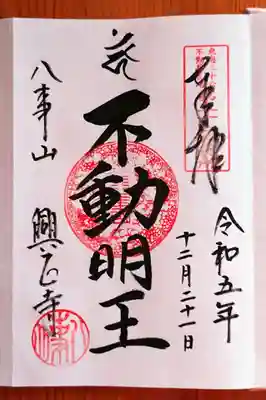 奉拝
令和五年
十二月二十一日
不動明王
八事山
興正寺